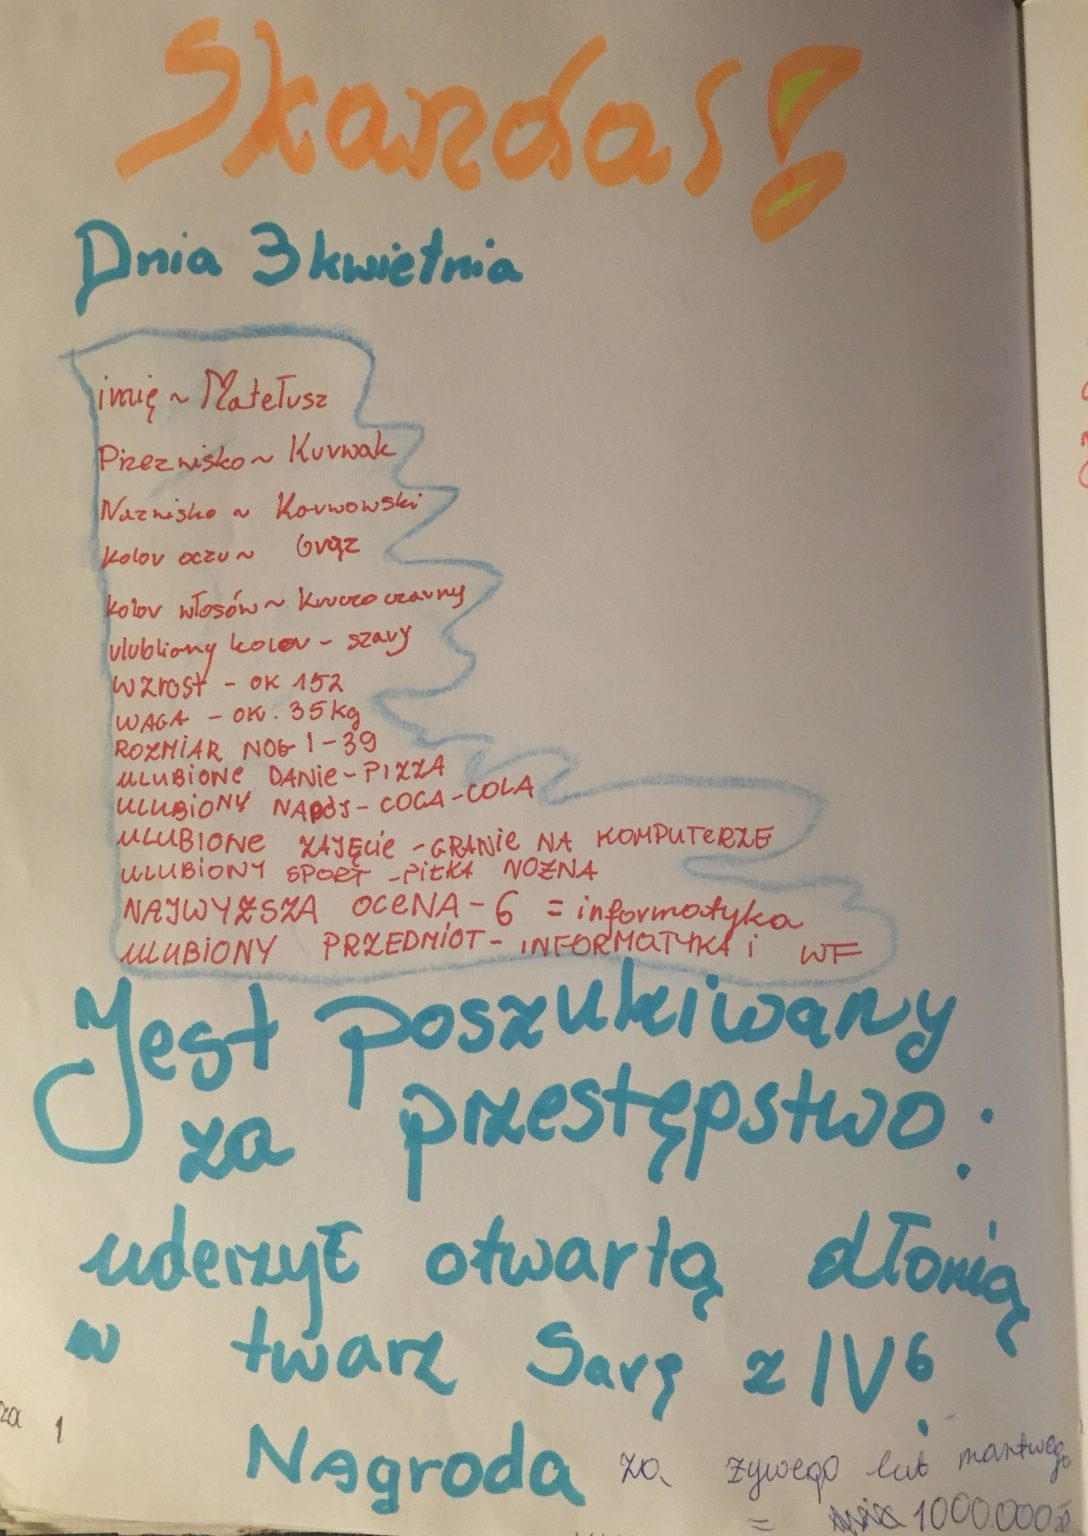 Skandal!
Dnia 3 kwietnia
imię ~ Matełusz
Przeznisko ~ Kurwak
Naznisko ~ Korwowski
kolor oczu ~ Brąz
kolor włosów ~ kruczoczarny
ulubiony kolor - szary
wzrost - OK 152
WAGA - OK. 35 kg
ROZMIAR NOGI - 39
ULUBIONE DANIE - PIZZA
ULUBIONY NAPÓJ - COCA-COLA
ULUBIONE ZAJĘCIE - GRANIE NA KOMPUTERZE
ULUBIONY SPORT - PIŁKA NOŻNA
NAJWYŻSZA OCENA - 6 = informatyka
ULUBIONY PRZEDMIOT - INFORMATYKA i WF
Jest poszukiwany
za przestępstwo:
uderzył otwartą dłonią
w twarz Sarę z IV6.
za 1
Nagroda za żywego lub martwego
= 1000.000 zł